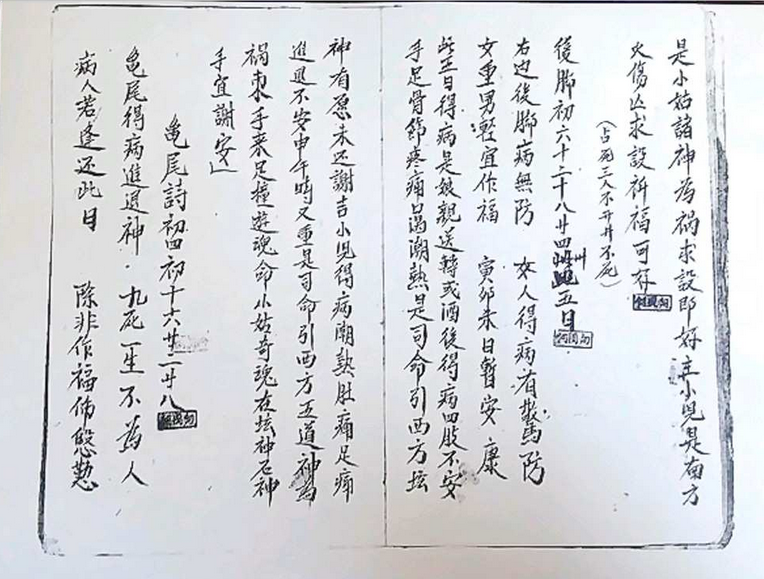 是小姑諸神為禍求設即好主小児是南方
火傷凶求設祈福可好
(占死三人不升升不死)
後脚初六十二十八廿四卅 五日
右边後脚病無防 女人得病有驚防
女重男輕宜作福 寅卯未日暫安康
此五日得病是被親送轉或酒後得病四股不安
手足骨節疼痛 潮熱是司命引西方坛
神有愿未还謝吉小児得病潮熱肚痛足痛
進退不安申午時又重是司命引西方五道神為
禍求手来足撞遊魂命小姑奇魂在坛神石神
手宜謝安
亀尾詩初四初十六廿二廿八
亀尾得病進退神 九死一生不為人
病人若逢还此日 除非作福佈慇懃